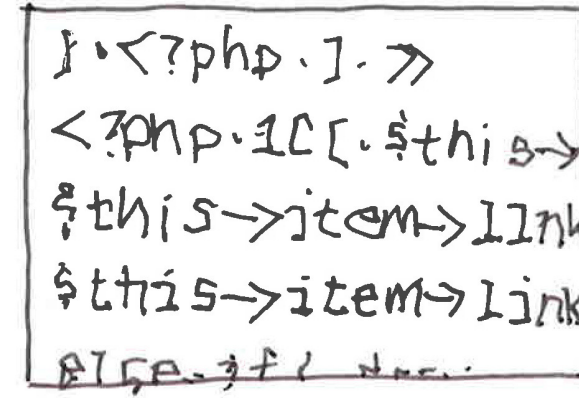 }·<?php·]·>>
<?php·1C[·$this->
$this->item->l1nk
$this->item->link